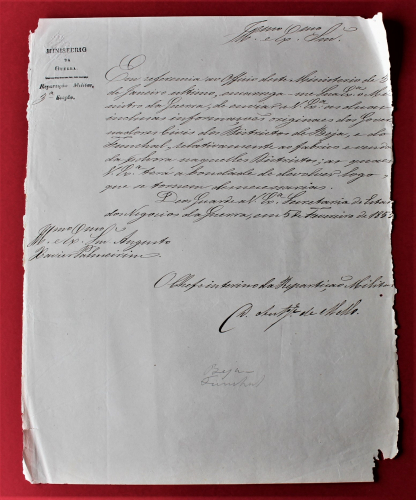 Illmo Exmo Snr.
MINISTERIO
DA
GUERRA
Repartição Militar
2ª Secção
Em referencia ao Officio deste Ministerio de
de Janeiro ultimo, encarrega-me Sua Exª o Mi
nistro da Guerra, de enviar a V. Exª as duas
inclusas informações originaes dos Gover
nadores Civis dos Districtos de Beja, e do
Funchal, relativamente ao fabrico e venda
da polvora naquelles Districtos; as quaes
V. Exª terá a bondade de devolver logo
que se tornem desnecessarias.
Deos Guarde a V. Exª Secretaria de Estado
dos Negocios da Guerra, em 5 de Fevereiro de
Illmo Exmo
Snr Augusto
Xavier Palmeirim
O Chefe interino da Repartição Militar
de Mello
Beja
Funchal